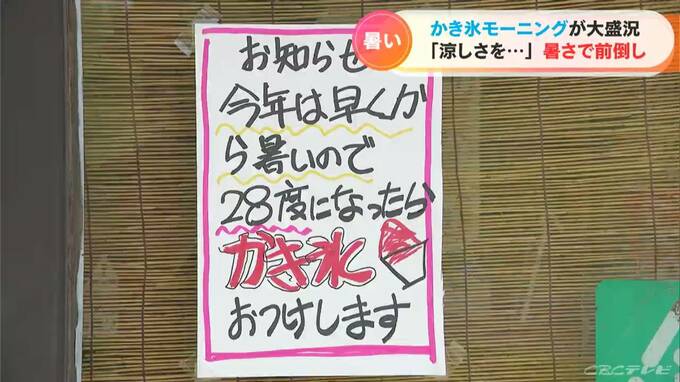 暑い
かき氷モーニングが大盛況
「涼しさを…」暑さで前倒し
お知らせ
今年は早くか
ら暑いので
28度になったら
かき氷
おつけします
CBCテレビ